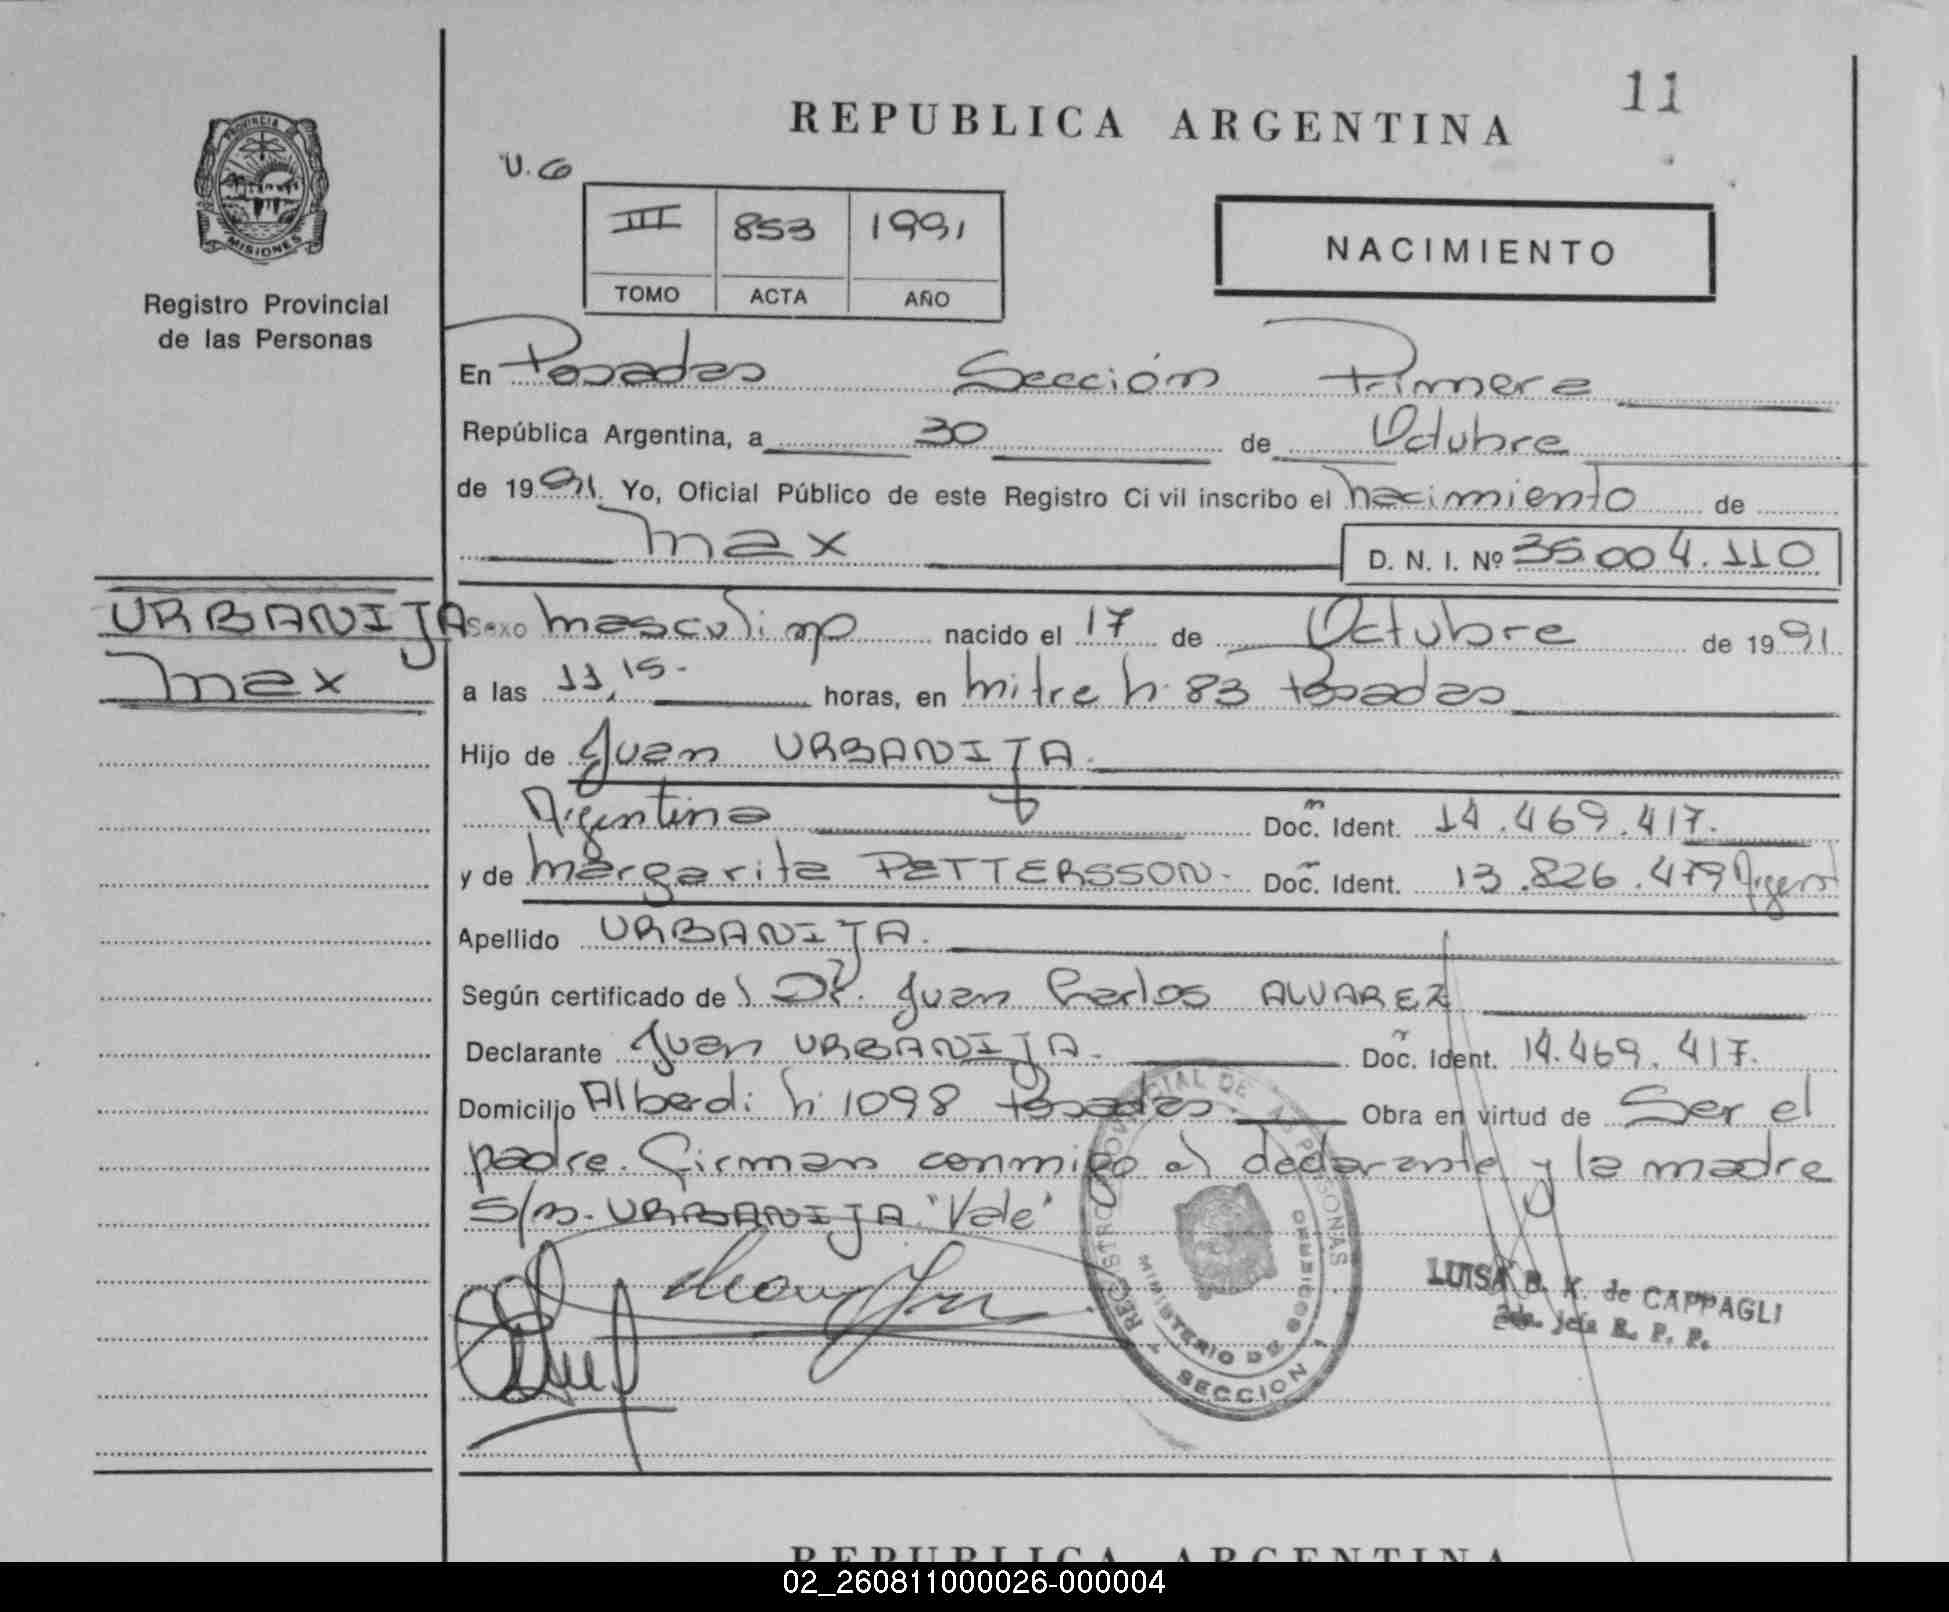 11
REPUBLICA ARGENTINA
PROVINCIA
MISIONES
Registro Provincial
de las Personas
U.Co
III 853 1991
TOMO ACTA AÑO
NACIMIENTO
En Posadas Sección Primera
República Argentina, a 30 de Octubre
de 1991. Yo, Oficial Público de este Registro Civil inscribo el nacimiento de
Max
D. N. I. Nº 35.004.110
URBANIJA
Max
Sexo masculino nacido el 17 de Octubre de 1991.
a las 11,15.- horas, en Mitre n: 83 Posadas
Hijo de Juan URBANIJA.
Argentina Doc. Ident. 14.469.417.
y de Margarita PETTERSSON- Doc. Ident. 13.826.479 Argent
Apellido URBANIJA.
Según certificado de Dr. Juan Carlos ALVAREZ
Declarante Juan URBANIJA.- Doc. Ident. 14.469.417.
Domicilio Alberdi n: 1098 Posadas Obra en virtud de Ser el
padre. Firman conmigo el declarante y la madre
S/r. URBANIJA "Vale"
REGISTRO PROVINCIAL DE LAS PERSONAS
MINISTERIO DE GOBIERNO
SECCION 1
LUISA B. K. de CAPPAGLI
2da. Jefe R. P. P.
REPUBLICA ARGENTINA
02_260811000026-000004